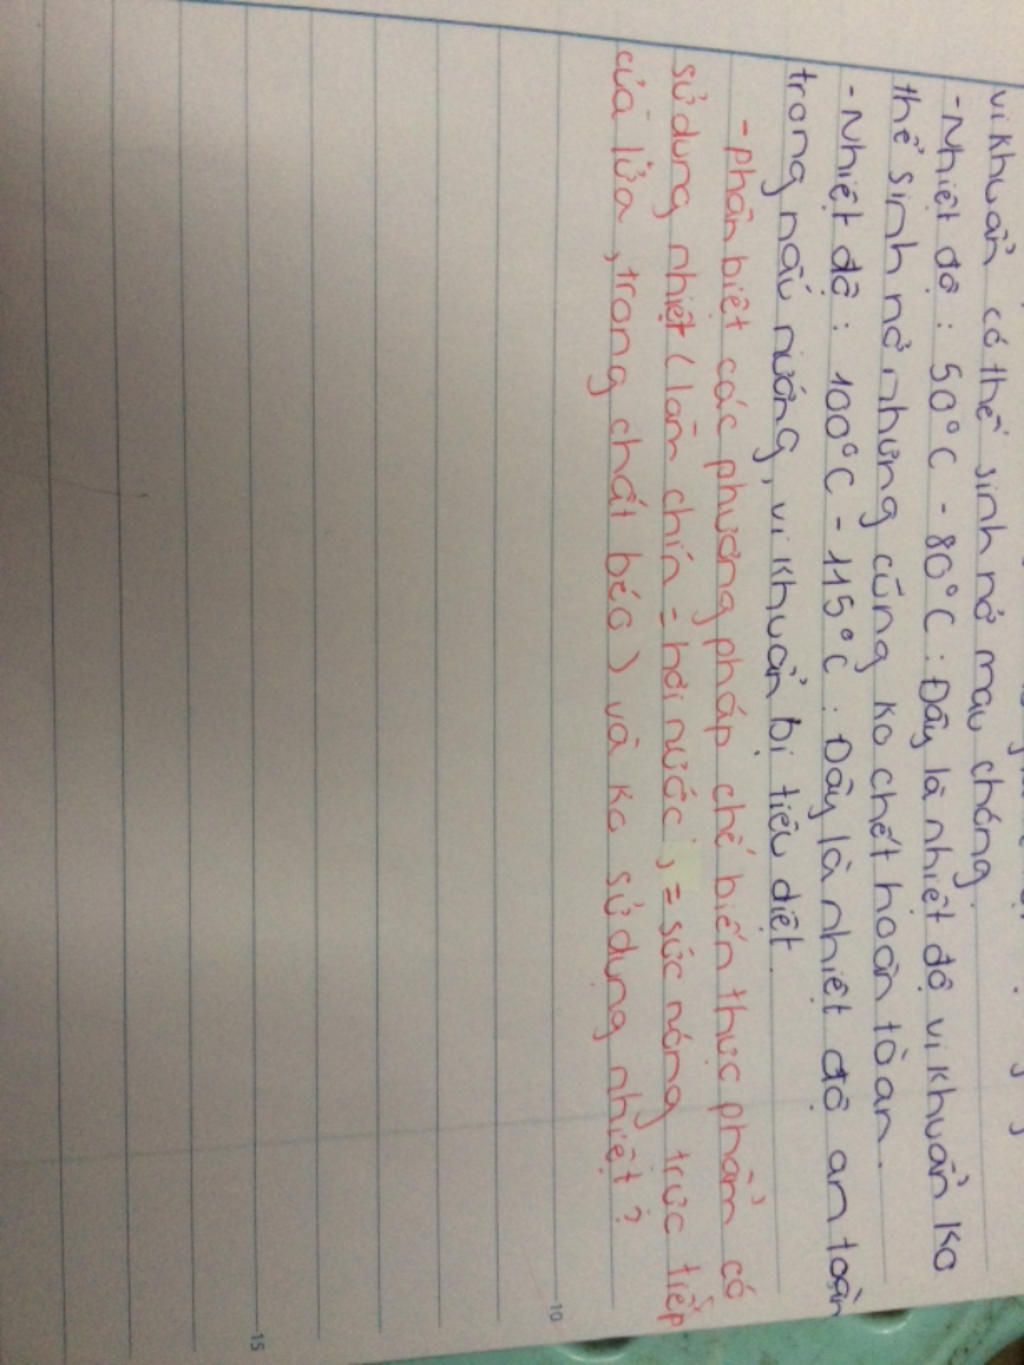 vi khuẩn có thể sinh nở mau chóng.
- Nhiệt độ : 50°C - 80°C : Đây là nhiệt độ vi khuẩn ko
thể sinh nở nhưng cũng ko chết hoàn tòan.
- Nhiệt độ : 100°C - 115°C : Đây là nhiệt độ an toàn
trong nấu nướng, vi khuẩn bị tiêu diệt.
- phân biệt các phương pháp chế biến thực phẩm có
sử dụng nhiệt (làm chín = hơi nước ; = sức nóng trực tiếp
của lửa , trong chất béo) và ko sử dụng nhiệt ?
10
15